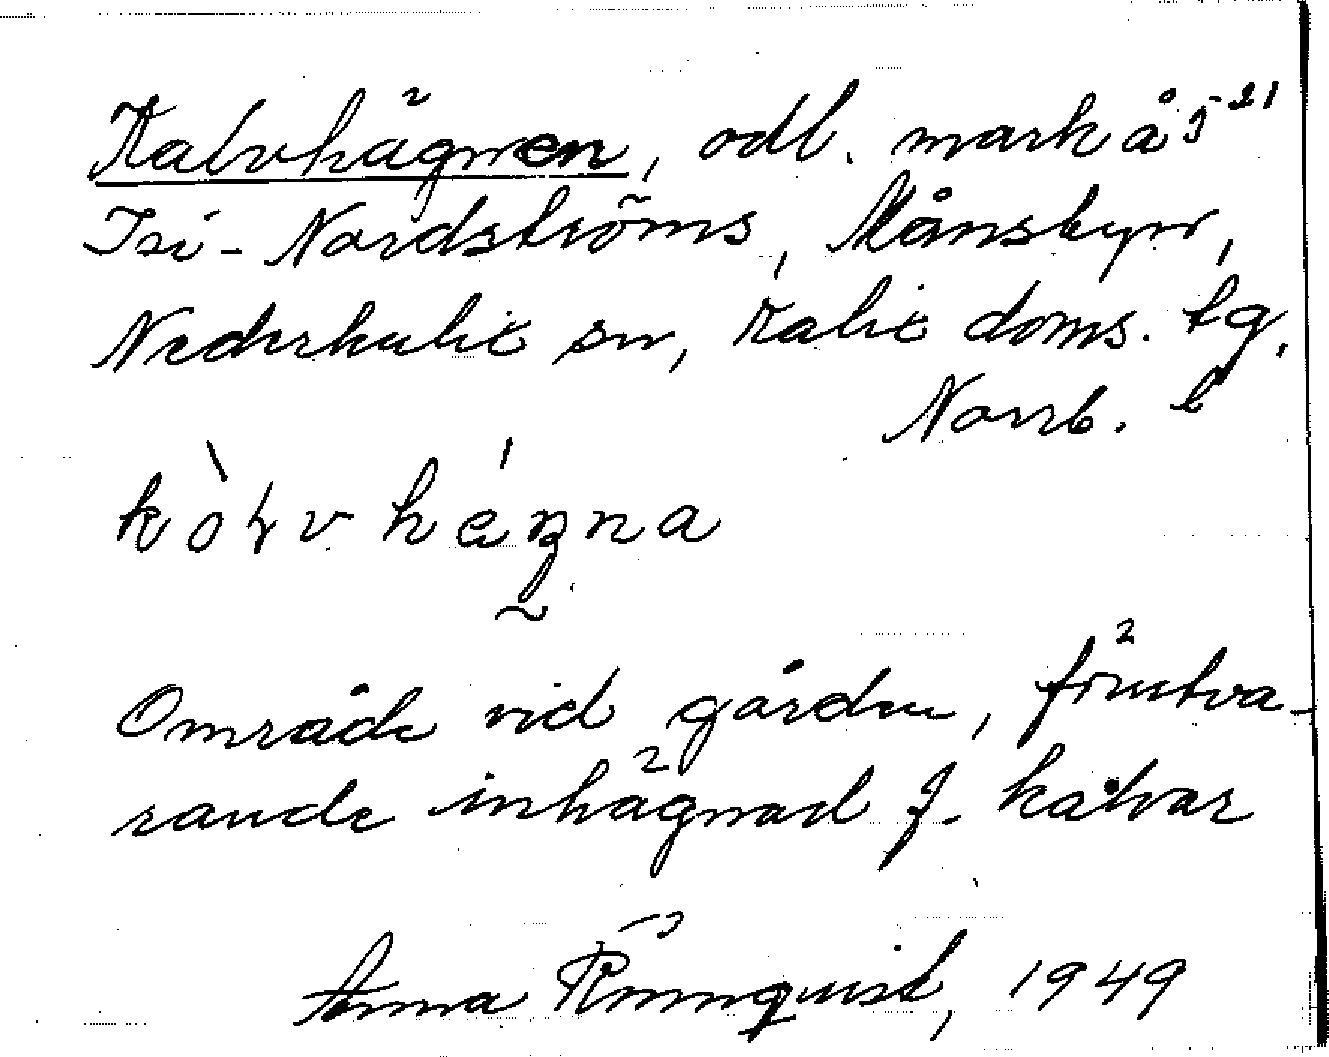 Kalvhägnen, odl. mark å 5²¹
Isi-Nordströms, Månsbyn,
Nederkalix sn, Kalix doms. tg,
Norrb. l
kòɽv hégna
Område vid gården, förutva-
rande inhägnad f. kalvar
Anna Rönnquist, 1949